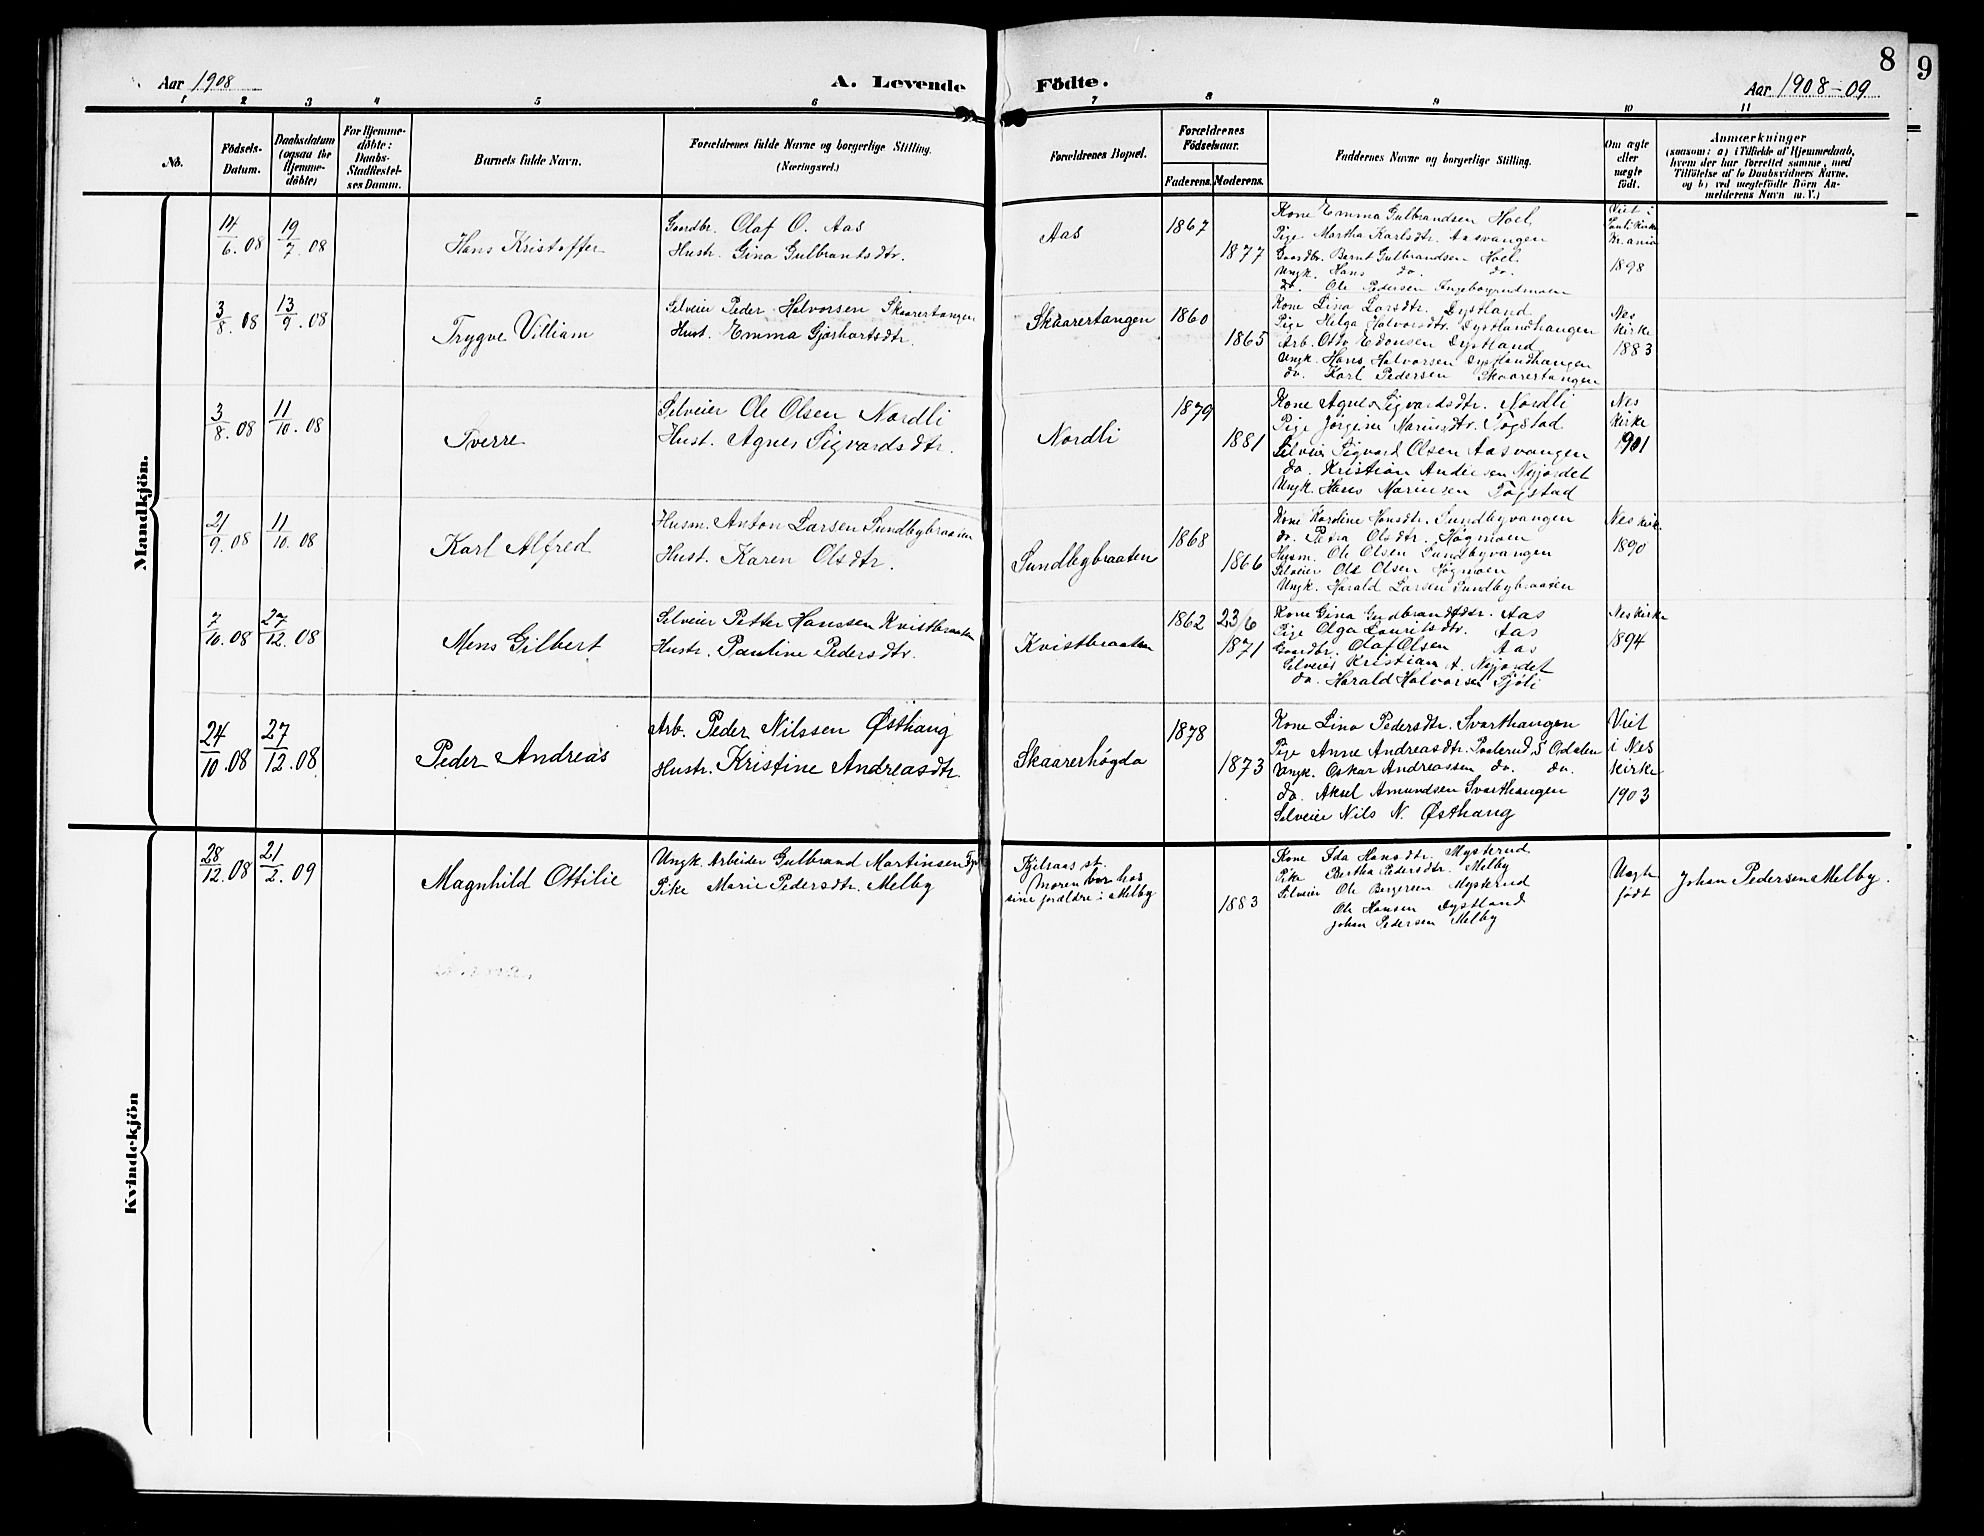 Aar 1908
A. Levende
Födte.
Aar 1908-09
8
9
1 2 3 4 5 6 7 8 9 10 11
No.
Födsels-
Datum.
Daabsdatum
(ogsaa for
Hjemme-
döbte)
For Hjemme-
döbte:
Daabs-
Stadfæstel-
ses Datum.
Barnets fulde Navn.
Forældrenes fulde Navne og borgerlige Stilling.
(Næringsvei.)
Forældrenes Bopæl.
Forældrenes
Födselsaar.
Faderens. Moderens.
Faddernes Navne og borgerlige Stilling.
Om ægte
eller
uægte
födt.
Anmærkninger
(saasom: a) i Tilfælde af Hjemmedaab,
hvem der har forrettet samme, med
Tilföielse af to Daabsvidners Navne,
og b) ved uægtefödte Börn An-
melderens Navn m. V.)
Mandkjön.
14/6.08
19/7.08
Hans Kristoffer
Gaardbr. Olaf O. Aas
Hustr. Gina Gulbrantsdtr.
Aas
1867
1877
Kone Emma Gulbrandsen Hoel
Pige Martha Karlsdtr. Aasvangen
Gaardbr. Bernt Gulbrandsen Hoel
Ungk. Hans do. do.
do. Ole Pedersen
Viet i
Kr.ania
1898
3/8.08
13/9.08
Trygve Villiam
Selveier Peder Halvorsen Skaarertangen
Hust. Emma Gjæshartsdtr.
Skaarertangen
1860
1865
Kone Lina Larsdtr. Dystland
Pige Helga Halvorsdtr. Dystlandhangen
Arb. Otto Edonsen Dystland
Ungk. Hans Halvorsen Dystlandhangen
do. Karl Pedersen Skaarertangen
Nes
Kirke
1883
3/8.08
11/10.08
Sverre
Selveier Ole Olsen Nordli
Hust. Agnes Sigvardsdtr.
Nordli
1879
1881
Kone Agnes Sigvardsdtr. Nordli
Pige Jørgine Mariusdtr. Togstad
Selveier Sigvard Olsen Aasvangen
do. Kristian Andersen Nyjordet
Ungk. Hans Mariusen Togstad
Nes
Kirke
1901
21/9.08
11/10.08
Karl Alfred
Husm. Anton Larsen Sundbybraaten
Hust. Karen Olsdtr.
Sundbybraaten
1868
1866
Kone Karoline Hansdtr. Sundbyvangen
do. Petra Olsdtr. Høgmoen
Husm. Ole Olsen Sundbyvangen
Selveier Ole Olsen Høgmoen
Ungk. Harald Larsen Sundbybraaten
Nes Kirk.
1890
7/10.08
27/12.08
Mens Gilbert
Selveier Petter Hanssen Kvistbraaten
Hustr. Pauline Pedersdtr.
Kvistbraaten
1862
23/6
1871
Kone Gina Gudbrandsdtr. Aas
Pige Olga Lauritsdtr. Aas
Gaardbr. Olaf Olsen Aas
Selveier Kristian A. Nyjordet
do. Harald Halvorsen Fjøli
Nes Kirke
1894
24/10.08
27/12.08
Peder Andreas
Arb. Peder Nilssen Østhaug
Hustr. Kristine Andreasdtr.
Skaarerhøgda
1878
1873
Kone Lina Pedersdtr. Svarthaugen
Pige Anne Andreasdtr. S Odalen
Ungk. Oskar Andreassen do. do.
do. Aksel Amundsen Svarthaugen
Selveier Nils N. Østhaug
Viet
i Nes
Kirke
1903
Kvindekjön
28/12.08
21/2.09
Magnhild Ottilie
Ungk. Arbeider Gulbrand Martinsen
Pike Marie Pedersdtr. Melby
Fjelraas st.
Moren bor hos
sine forældre i Melby
1883
Kone Ida Hansdtr. Mysterud
Pike Bertha Pedersdtr. Melby
Selveier Ole Borgersen Mysterud
Ole Hansen Dystland
Johan Pedersen Melby
Uægte
født
Johan Pedersen Melby.